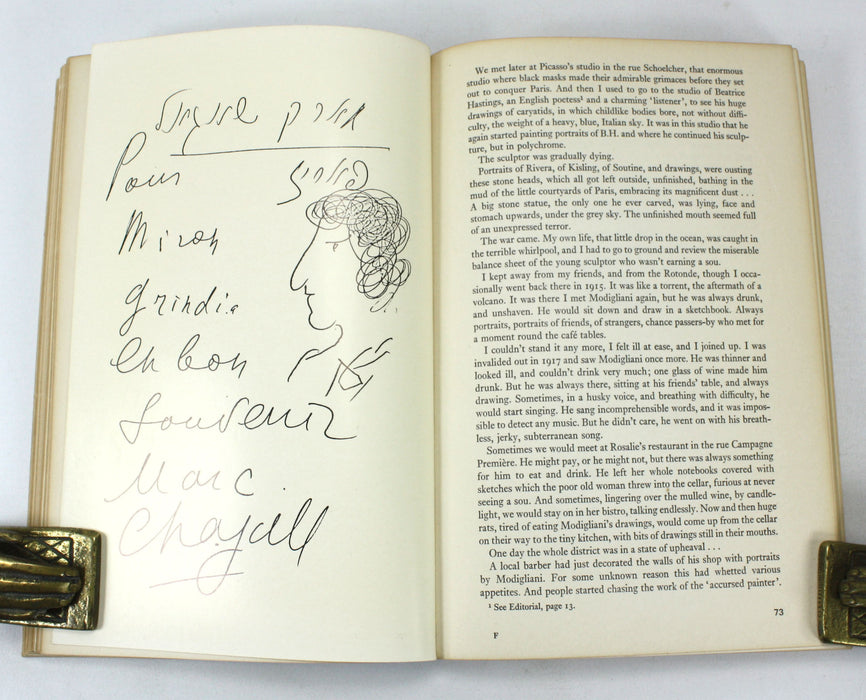 מארק שאגאל
Pour
פאריז
Miron
Grindia
en bon
Souvenir
Marc
Chagall
We met later at Picasso's studio in the rue Schoelcher, that enormous
studio where black masks made their admirable grimaces before they set
out to conquer Paris. And then I used to go to the studio of Beatrice
Hastings, an English poetess¹ and a charming 'listener', to see his huge
drawings of caryatids, in which childlike bodies bore, not without diffi-
culty, the weight of a heavy, blue, Italian sky. It was in this studio that he
again started painting portraits of B.H. and where he continued his sculp-
ture, but in polychrome.
The sculptor was gradually dying.
Portraits of Rivera, of Kisling, of Soutine, and drawings, were ousting
these stone heads, which all got left outside, unfinished, bathing in the
mud of the little courtyards of Paris, embracing its magnificent dust . . .
A big stone statue, the only one he ever carved, was lying, face and
stomach upwards, under the grey sky. The unfinished mouth seemed full
of an unexpressed terror.
The war came. My own life, that little drop in the ocean, was caught in
the terrible whirlpool, and I had to go to ground and review the miserable
balance sheet of the young sculptor who wasn't earning a sou.
I kept away from my friends, and from the Rotonde, though I occa-
sionally went back there in 1915. It was like a torrent, the aftermath of a
volcano. It was there I met Modigliani again, but he was always drunk,
and unshaven. He would sit down and draw in a sketchbook. Always
portraits, portraits of friends, of strangers, chance passers-by who met for
a moment round the café tables.
I couldn't stand it any more, I felt ill at ease, and I joined up. I was
invalided out in 1917 and saw Modigliani once more. He was thinner and
looked ill, and couldn't drink very much; one glass of wine made him
drunk. But he was always there, sitting at his friends' table, and always
drawing. Sometimes, in a husky voice, and breathing with difficulty, he
would start singing. He sang incomprehensible words, and it was impos-
sible to detect any music. But he didn't care, he went on with his breath-
less, jerky, subterranean song.
Sometimes we would meet at Rosalie's restaurant in the rue Campagne
Première. He might pay, or he might not, but there was always something
for him to eat and drink. He left her whole notebooks covered with
sketches which the poor old woman threw into the cellar, furious at never
seeing a sou. And sometimes, lingering over the mulled wine, by candle-
light, we would stay on in her bistro, talking endlessly. Now and then huge
rats, tired of eating Modigliani's drawings, would come up from the cellar
on their way to the tiny kitchen, with bits of drawings still in their mouths.
One day the whole district was in a state of upheaval . . .
A local barber had just decorated the walls of his shop with portraits
by Modigliani. For some unknown reason this had whetted various
appetites. And people started chasing the work of the 'accursed painter'.
¹ See Editorial, page 13.
73
F